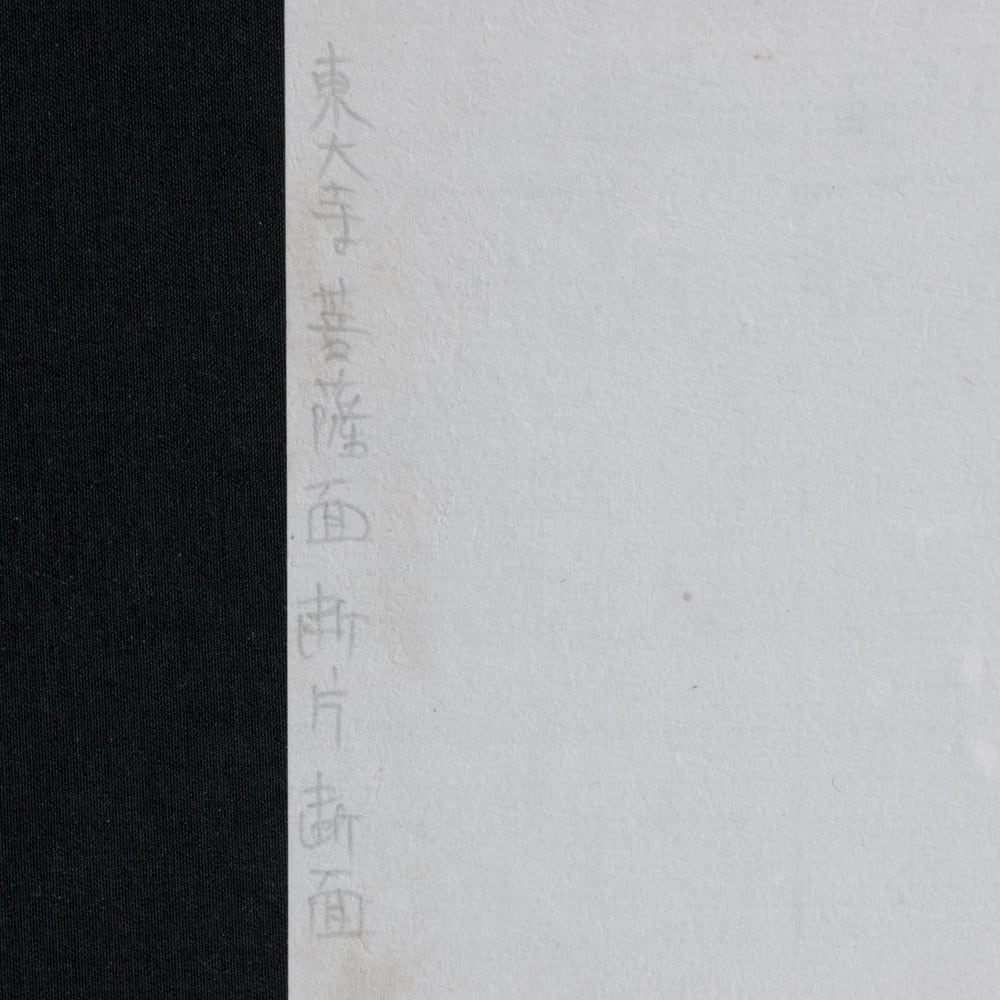 東大寺 菩薩面 断片 断面